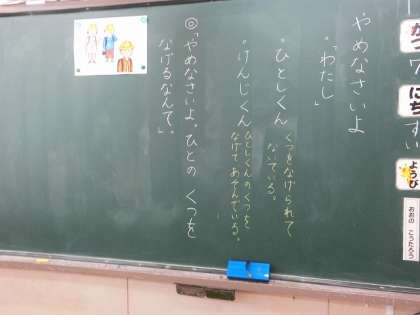 がつ
にち
ようび
おおの こうたろう
やめなさいよ
「わたし」
・ひとしくん くつをなげられて
ないている。
・けんじくん ひとしくんのくつを
なげてあそんでいる。
◎「やめなさいよ。ひとの くつを
なげるなんて。」